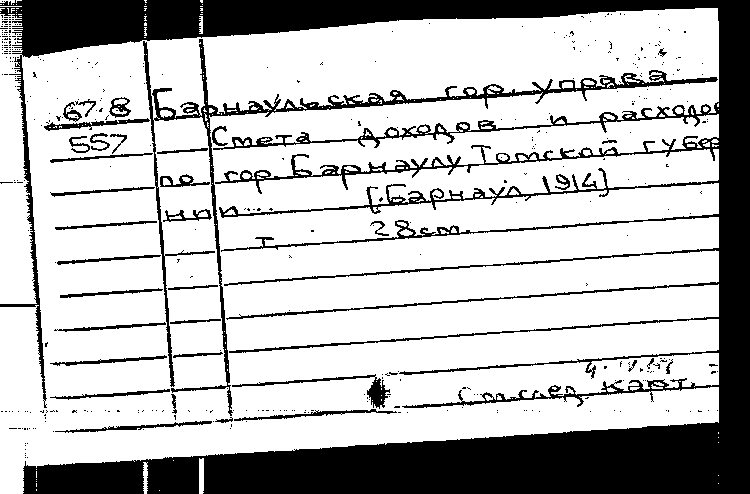 67.8 Барнаульская гор. управа
557 Смета доходов и расходов
по гор. Барнаулу, Томской губер
нии... [Барнаул, 1914]
т. 28 см.
См. след. карт.